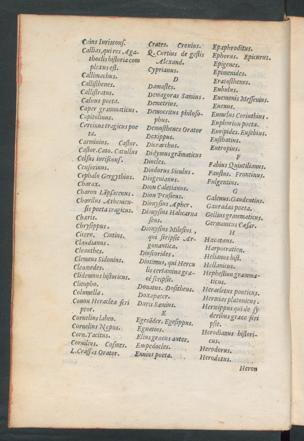 Caius Iurisconſ.
Callias, qui res Aga-
thoclis hiſtoria com
plexus eſt.
Callimachus.
Calliſthenes.
Calliſtratus.
Caluus poeta.
Caper grammaticus.
Capitolinus.
Carcinus tragicus poe
ta.
Carminius. Caſtor.
Caſtor. Cato. Catullus
Celſus iuriſconſ.
Cenſorinus.
Cephalo Gergythius.
Charax.
Charon Lãpſacenus.
ſis poeta tragicus.
Charis.
Chryſippus.
Cicero.
Claudianus.
Cleanthes.
Clemens Sidonius.
Cleomedes.
Clidemus hiſtoricus.
Clitopho.
Columella.
Conon Heraclea ſcri
ptor.
Cornelius labeo.
Cornelius Nepos.
Corn. Tacitus.
Cornificius.
L. Craſſus Orator.
Crates. Creonius.
Q. Curtius de geſtis
Alexand.
Cyprianus.
D
Damaſtes.
Demagoras Samius.
Demetrius.
Democritus philoſo-
phus.
Demoſthenes Orator
Dexippus.
Dicæarchus.
Didymus grãmaticus
Diocles.
Diodorus Siculus.
Diogenianus.
Dion Caſsianus.
Dion Pruſæus.
Dionyſius Apher.
Dionyſius Halicarna
ſeus.
Dionyſius Mileſius,
qui ſcripſit Ar-
gonautica.
Dioſcorides.
Diotimus, qui Hercu
lis certamina græ-
cè ſcripſit.
Donatus. Doſitheus.
Doxapater.
Duris Samius.
E
Egeſander. Egeſippus.
Egnatius.
Empedocles.
Ennius poeta.
Epaphroditus.
Ephorus. Epicurus.
Epigenes.
Epimenides.
Eratoſthenes.
Eubulus.
Euemeris Meſſenius.
Eumenius.
Eumelus Corinthius.
Euphorion poeta.
Euripides. Euſebius.
Euſtathius.
Eutropius.
F
Fabius Quintilianus.
Fauſtus. Frontinus.
Fulgentius.
G
Galenus. Gaudentius.
Gellius grammaticus.
Germanicus Cæſar.
H
Hecatæus.
Harpocration.
Hellanicus.
Hephæſtion gramma-
ticus.
Heraclitus ponticus.
Hermias platonicus.
Hermippus qui de ſy
deribus græcè ſcri
pſit.
Herodianus hiſtori-
cus.
Herodorus.
Herodotus.
Heron